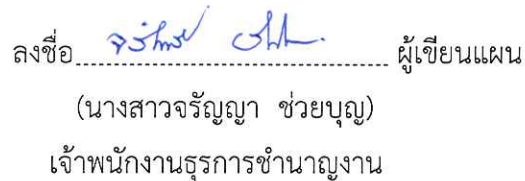 ลงชื่อ................................ ผู้เขียนแผน
(นางสาวจรัญญา ช่วยบุญ)
เจ้าพนักงานธุรการชำนาญงาน